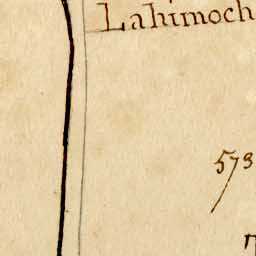 Lahimoch
573